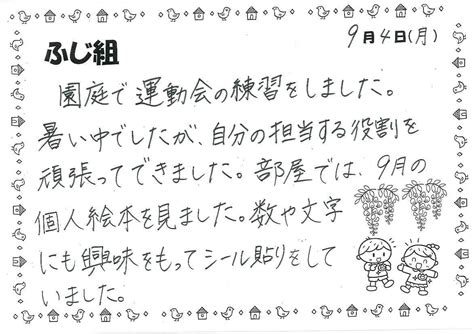 9月4日(月)
ふじ組
園庭で運動会の練習をしました。
暑い中でしたが、自分の担当する役割を
頑張ってできました。部屋では、9月の
個人絵本を見ました。数や文字
にも興味をもってシール貼りをして
いました。